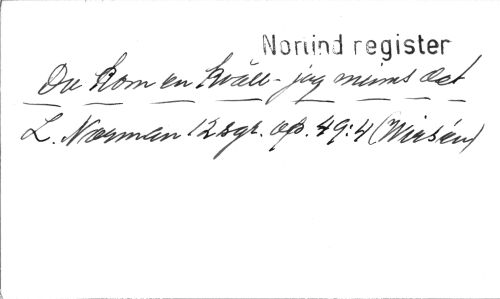 Norlind register
Du kom en kväll - jag minns det
L. Norman 12 sgr. op. 49:4 (Wirsén)